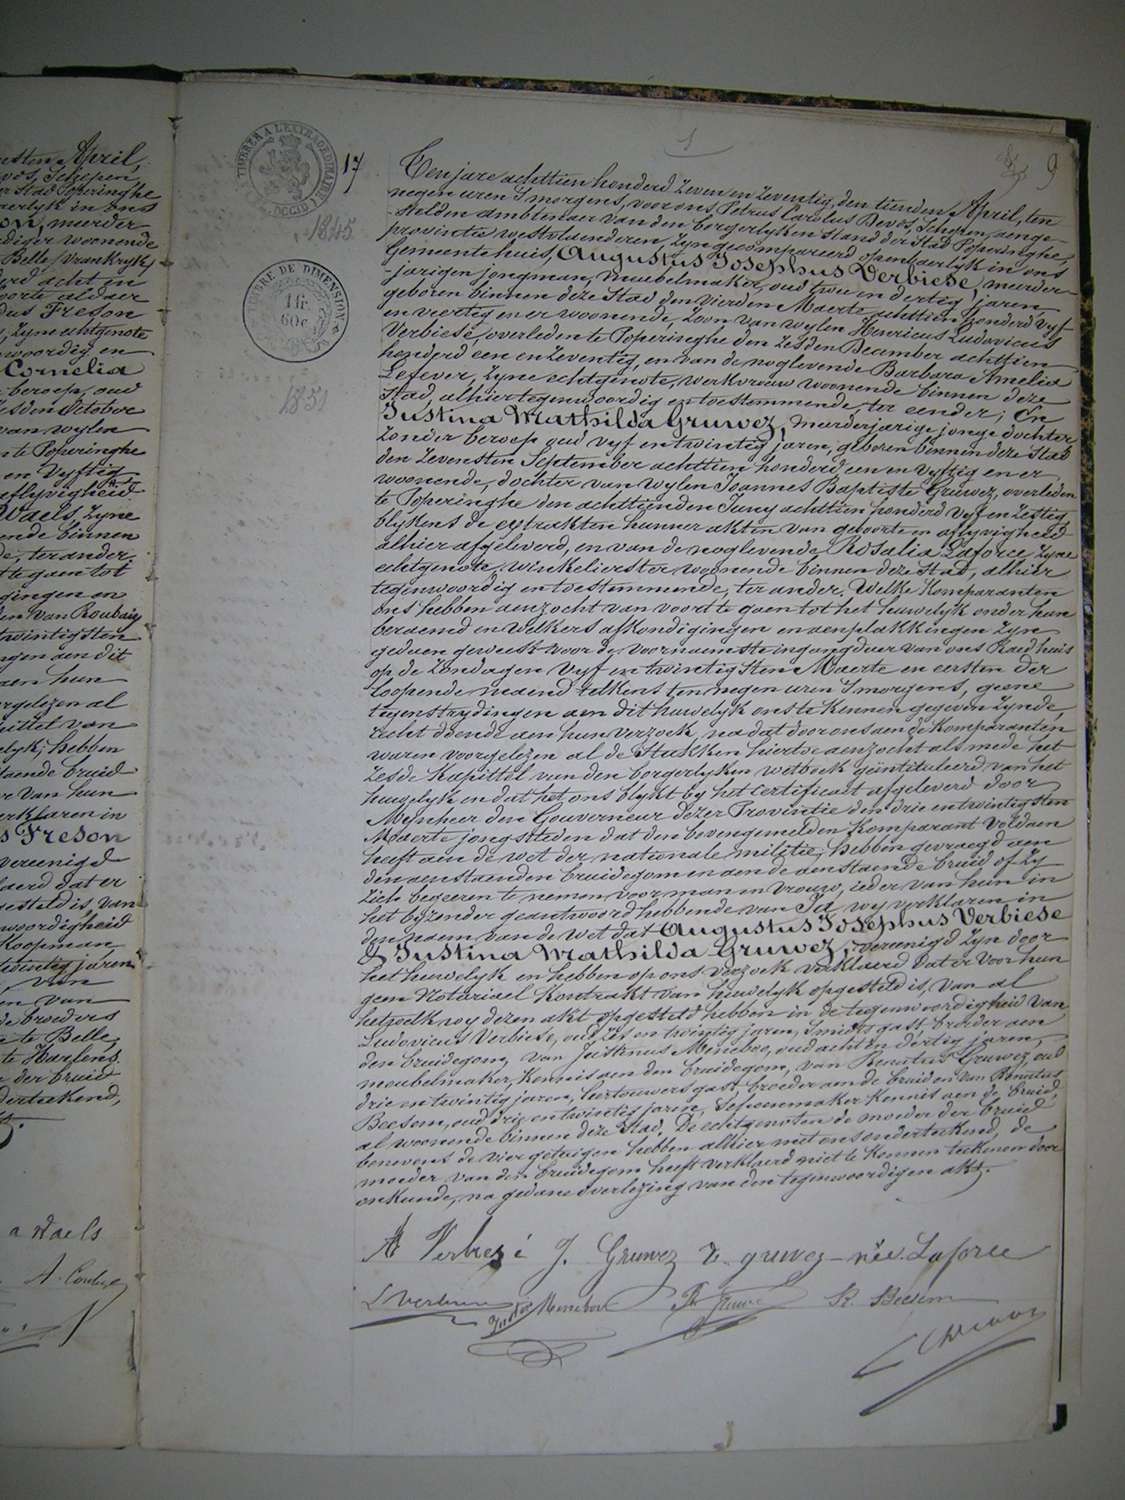 esten April,
evos, Schepen
er Stad Poperinghe
aerlyk in ons
on, meerder
ediger woonende
Belle, Vrankryk
erd acht en
oorte aldaer
dus Freson
, Zyne echtgenote
nwoordig en
Cornelia
beroep, oud
esden October
van wylen
te Poperinghe
en Vyftig
eflyvigheid
Waels, Zyne
ende binnen
de, ter ander,
te gaen tot
gingen en
den van Roubaix
twintigsten
ngen aen dit
aen hun
rgelezen al
pittel van
elyk; hebben
taende bruid
er van hun
erklaren in
s Freson
vereenigd
laerd dat er
gesteld is van
nwoordigheid
Koopman
twintig jaren
van
en van
de broeders
te Belle,
te Haesens
e der bruid
derteekend,
a Waels
TIMBRE A L'EXTRAORDINAIRE
17
1845
TIMBRE DE DIMENSION
1 fr
60 c
1851
1
9
Ten jare achttien honderd zeven en zeventig, den tienden April, ten
negen uren 's morgens, voor ons, Petrus Carolus Devos, Schepen, aenge-
stelden ambtenaer van den borgerlyken stand der Stad Poperinghe,
provintie westvlaenderen, Zyn gecompareerd openbaerlyk in ons
Gemeentehuis, Augustus Josephus Verbiese, meerder-
-jarigen jongman, meubelmaker, oud twee en dertig jaren,
geboren binnen deze Stad den vierden Maerte achttien honderd vyf
en veertig en er woonende, Zoon van wylen Henricus Ludovicus
Verbiese, overleden te Poperinghe den Zesden December achttien
honderd een en zeventig, en van de noglevende Barbara Amelia
Lefever, Zyne echtgenote, werkvrouw woonende binnen deze
Stad, alhier tegenwoordig en toestemmende, ter eender; En
Justina Mathilda Gruwez, meerderjarige jonge dochter
Zonder beroep oud vyf en twintig jaren, geboren binnen deze Stad
den Zevensten September achttien honderd een en vyftig en er
woonende, dochter van wylen Joannes Baptiste Gruwez, overleden
te Poperinghe den achttienden Juny achttien honderd vyf en zestig,
blykens de extrakten hunner akten van geboorte en aflyvigheid
alhier afgeleverd, en van de noglevende Rosalia Laforce Zyne
echtgenote, winkelierster woonende binnen deze Stad, alhier
tegenwoordig en toestemmende, ter ander. Welke Komparanten
ons hebben aenzocht van voort te gaen tot het huwelyk onder hun
beraemd en welkers afkondigingen en aenplakkingen Zyn
gedaen geweest voor de voornaemste ingangdeur van ons Raedhuis
op de Zondagen vyf en twintigsten Maerte en eersten der
loopende maend telkens ten negen uren 's morgens, geene
tegenstrydingen aen dit huwelyk ons te kennen gegeven Zynde,
recht doende aen hun verzoek, na dat door ons aen de Komparanten
waren voorgelezen al de Stukken hiertoe aenzocht als mede het
Zesde Kapittel van den borgerlyken wetboek geïntituleerd van het
huwelyk en dat het ons blykt by het certificaet afgeleverd door
Mynheer den Gouverneur dezer Provintie den drie en twintigsten
Maerte jongstleden dat den bovengemelden Komparant voldaen
heeft aen de wet der nationale militie; hebben gevraegd aen
den aenstaenden bruidegom en aen de aenstaende bruid of Zy
Zich begeeren te nemen voor man en vrouw, ieder van hun in
het byzonder geantwoord hebbende van Ja, wy verklaren in
den naem van de wet dat Augustus Josephus Verbiese
& Justina Mathilda Gruwez, vereenigd Zyn door
het huwelyk en hebben op ons verzoek verklaerd dat er voor hun
geen Notarieel Kontrakt van huwelyk opgesteld is, van al
hetgeelk wy dezen akt opgesteld hebben in de tegenwoordigheid van
Ludovicus Verbiese, oud Zes en twintig jaren, Smidsgast, broeder aen
den bruidegom, van Justinus Meneboo, oud acht en dertig jaren,
meubelmaker, Kennis aen den bruidegom, van Renatus Gruwez, oud
drie en twintig jaren, leertouwersgast, broeder aen de bruid en van Renatus
Beesem, oud drie en twintig jaren, Schoenmaker Kennis aen de bruid,
al woonende binnen deze Stad. De echtgenoten de moeder der bruid
benevens de vier getuigen hebben alhier met ons onderteekend, de
moeder van den bruidegom heeft verklaerd niet te Konnen teekenen door
onkunde, na gedane overlezing van den tegenwoordigen akt.
A Verbiesé J. Gruwez R. gruwez-née Laforce
L Verbiese Justus Meneboo R. Gruwez R. Beesem
C Devos